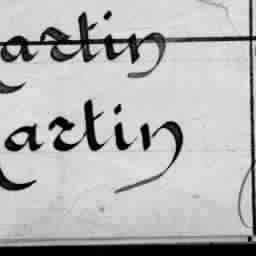 artin
artin